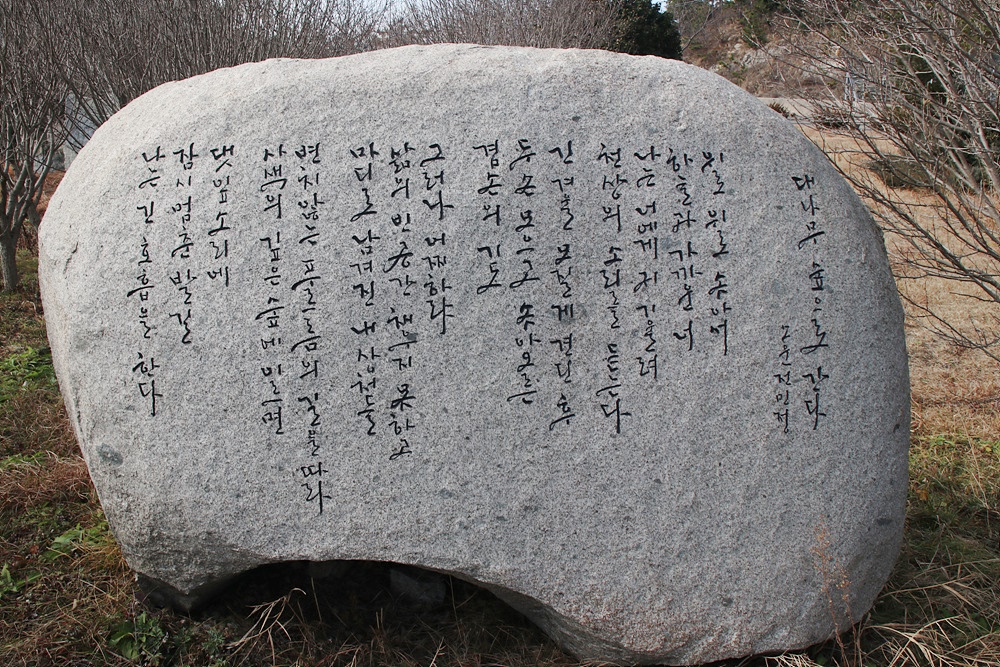 대나무 숲으로 간다
고운 전인정
위로 위로 솟아서
하늘과 가까운 너
나는 너에게 귀 기울려
천상의 소리를 듣는다
긴 겨울 모질게 견딘 후
두 손 모으고 솟아오른
겸손의 기도
그러나 어찌하랴
삶의 빈 공간 채우지 못하고
마디로 남겨진 내 상처들
변치않는 푸르름의 길을 따라
사색의 깊은 숲에 민트면
댓잎 소리에
잠시 멈춘 발길
나는 긴 호흡을 한다